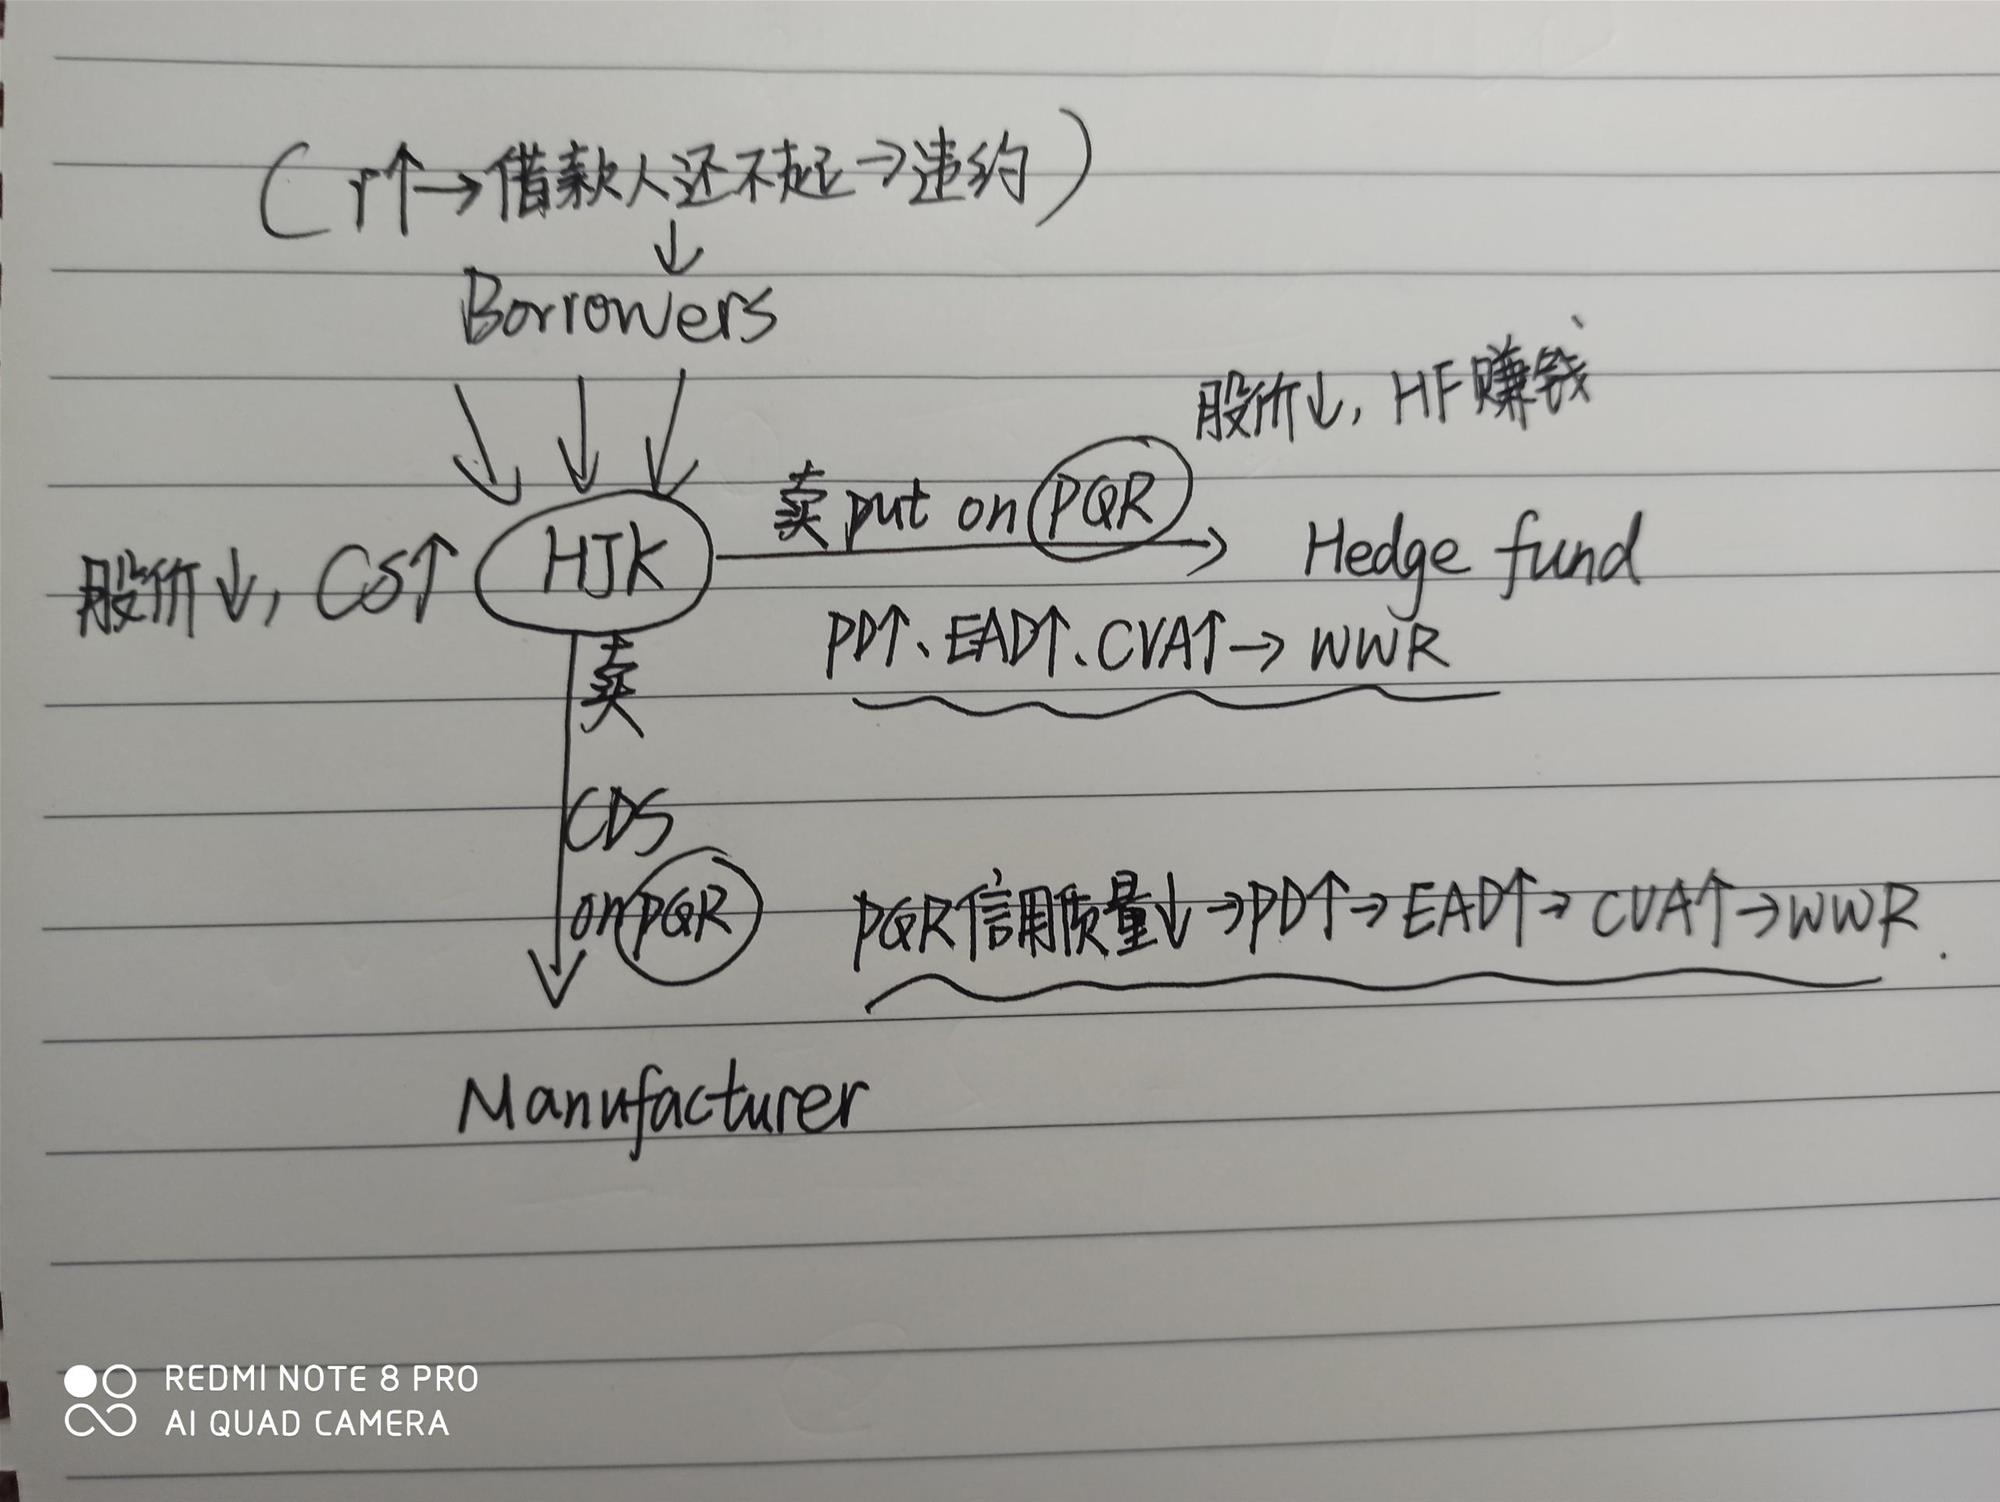 (r↑→借款人还不起→违约)
↓
Borrowers
股价↓, HF赚钱
卖 put on PQR
股价↓, CS↑ HJK → Hedge fund
PD↑、EAD↑、CVA↑→ WWR
卖
CDS
on PQR PQR信用质量↓→PD↑→EAD↑→CVA↑→WWR.
Manufacturer
REDMI NOTE 8 PRO
AI QUAD CAMERA